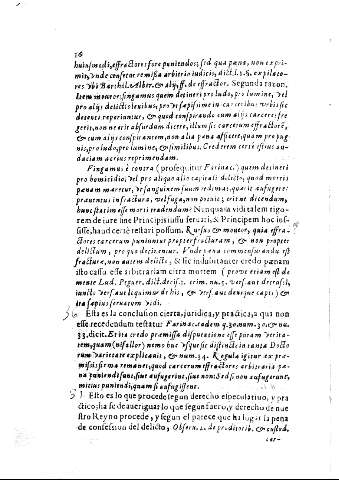 36
huiusmodi, effractores fore puniendos; sed qua pœna, non expri-
mit, vnde censetur remissa arbitrio iudicis, dict. l. 1. §. expilato-
res vbi Barthol. Alber. & alij, ff. de effractor. Segunda razon,
Item moueor: singamus quem detineri pro ludo, pro lumine, vel
pro alijs delictis leuibus, prout sæpissime in carceribus vrbis sic
detentos reperiuntur, & quod conspirando cum alijs carceres fre
gerit, non erit absurdum dicere, illum sic carcerum effractorẽ,
& cum alijs conspirantem, non alia pœna affici, quam pro pug-
nis, pro ludo, pro lumine, & similibus. Crederem certè eius au-
daciam acrius reprimendam.
Fingamus è contra (prosequitur Farinac.) quem detineri
pro homicidio, vel pro aliquo alio capitali delicto, quod mortis
pœnam meretur, & sanguinem suum redimat, quærit aufugere:
præuenitur in fractura, vel fuga, non
hunc statim esse morti tradendum? Nunquam vidi talem rigo-
rem de iure sine Principis iussu seruari: & Principem hoc ius-
sisse, haud certè testari possum. Rursus & moueor, quia effra-
ctores carcerum puniuntur propter fracturam, & non propter
delictum, pro quo detinentur. Vnde pœna commensuranda est
fracturæ, non autem delicto, & sic indubitanter credo pœnam
isto casu esse arbitrariam citra mortem (prout etiam est de
mente Lud. Peguer. dict. decis. crim. nu.
iunctis versu & versu
ita sæpius seruatum vidi.
36 Esta es la conclusion cierta, juridica, y practica, a qua non
esse recedendum testatur Farinac. eadem q. 30. num. 30. & nu.
33. dicit. Erit a credo præmissa disputatione esse puram verita-
rem, quam (ni fallor) nemo huc vsque sic distinctè in tanta Docto
rum varietate explicauit, & num. 34. Regula igitur ex præ-
missis firma remanet, quod carcerum effractores arbitraria pœ-
na puniendi sunt, siue aufugerint, siue non: Sed si non aufugerint,
mitius puniendi, quam si aufugissent.
Esto es lo que procede segun derecho especulatiuo, y pra
ctico; ha se de aueriguar lo que segun fuero, y derecho de nue
stro Reyno procede, y segun èl parece que ha lugar la pena
de confession del delicto, Obseru. 2. de proditorib. & custod.
car-